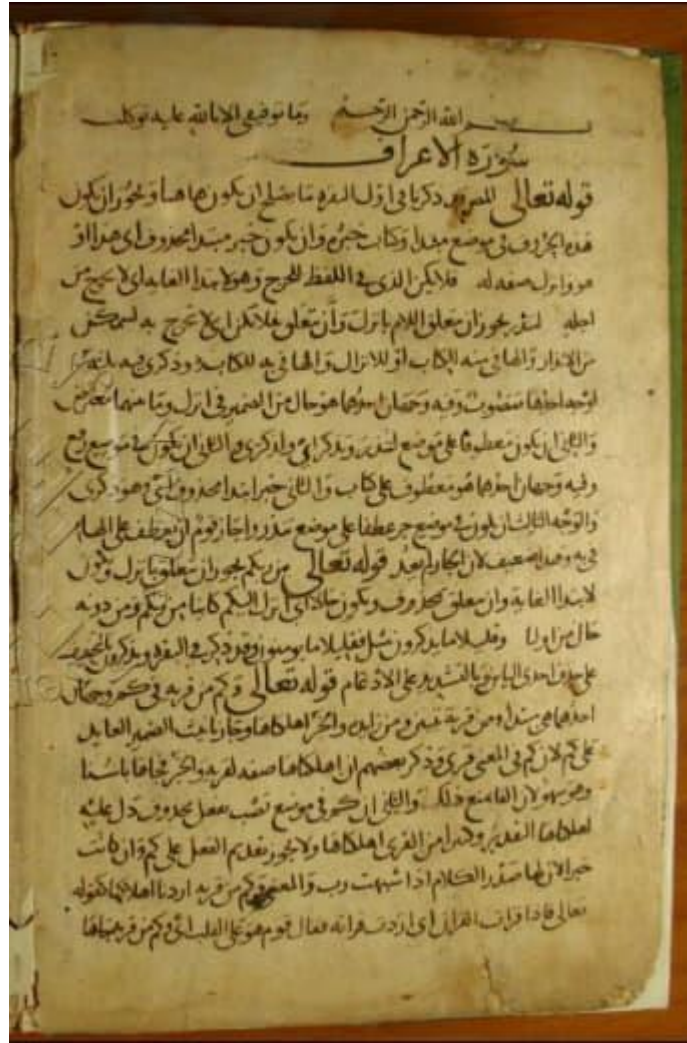 بسم الله الرحمن الرحيم وما توفيقي الا بالله عليه توكلت
سورة الاعراف
قوله تعالى المص قد ذكرنا في اول البقرة ما يصلح ان يكون هاهنا ويجوز ان يكون
هذه الحروف في موضع مبتدا وكتاب خبره وان يكون خبر مبتدا محذوف اي هذا او
هو وانزل صفه له فلا يكن النهي في اللفظ للحرج وهو لابتدا الغايه اي لا تحرج من
اجله لتنذر يجوز ان يتعلق اللام بانزل وان تتعلق بفلا يكن اي لا تحرج به لتتمكن
من الانذار والها في منه للكتاب او للانزال والها في به للكتاب وذكرى فيه ثلثة
اوجه احدها منصوب وفيه وجهان احدهما هو حال من الضمير في انزل وما بينهما معترض
والثاني ان يكون معطوفا على موضع لتنذر وتذكر اي ولذكرى والثاني ان يكون في موضع رفع
وفيه وجهان احدهما هو معطوف على كتاب والثاني خبر ابتدا محذوف اي وهو ذكرى
والوجه الثالث ان يكون في موضع جر عطفا على موضع تنذر واجاز قوم ان يعطف على الها
في به وهذا ضعيف لان الجار لم يعد قوله تعالى من ربكم يجوز ان يتعلق بانزل ويكون
لابتدا الغاية وان يتعلق بمحذوف ويكون حالا اي انزل اليكم كاينا من ربكم ومن دونه
حال من اوليا وقليلا ما يذكرون مثل فقليلا ما يومنون وقد ذكر في البقرة ويذكرون بالتخفيف
على حذف احدى التاين وبالتشديد على الادغام قوله تعالى وكم من قرية في كم وجهان
احدهما هي مبتدا ومن قرية تبيين ومن زايده والخبر اهلكناها وجاز تانيث الضمير العايد
على كم لان كم في المعنى قرى وذكر بعضهم ان اهلكناها صفه لقريه والخبر فجاها باسنا
وهو سهو لان الفا تمنع ذلك والثاني ان كم في موضع نصب بفعل محذوف دل عليه
اهلكناها التقدير وكثيرا من القرى اهلكناها ولا يجوز تقديم الفعل على كم وان كانت
خبرا لان لها صدر الكلام اذا اشبهت رب والمعنى وكم من قريه اردنا اهلاكها كقوله
تعالى فاذا قرات القران اي اردت قراته فقال قوم هو على القلب اي وكم من قريه جاها